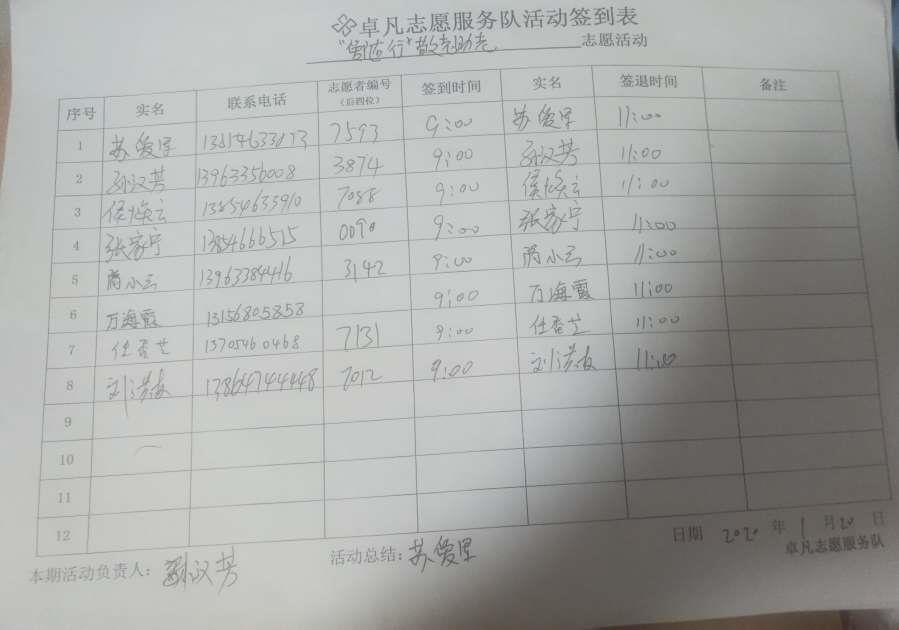 卓凡志愿服务队活动签到表
敬老助老 志愿活动
序号 实名 联系电话 志愿者编号（后四位） 签到时间 实名 签退时间 备注
1 苏爱军 7593 9:00 苏爱军 11:00
2 孙汉芳 13963356008 3874 9:00 孙汉芳 11:00
3 侯焕云 13854633910 7088 9:00 侯焕云 11:00
4 张家宁 13854666515 0090 9:00 张家宁 11:00
5 蒋小云 13963384416 3142 9:00 蒋小云 11:00
6 万海霞 13156805858 9:00 万海霞 11:00
7 任香芝 13705460468 7131 9:00 任香芝 11:00
8 13864744448 7012 9:00 11:00
9
10
11
12
日期 2020 年 1 月 20 日
本期活动负责人： 孙汉芳 活动总结： 苏爱军 卓凡志愿服务队